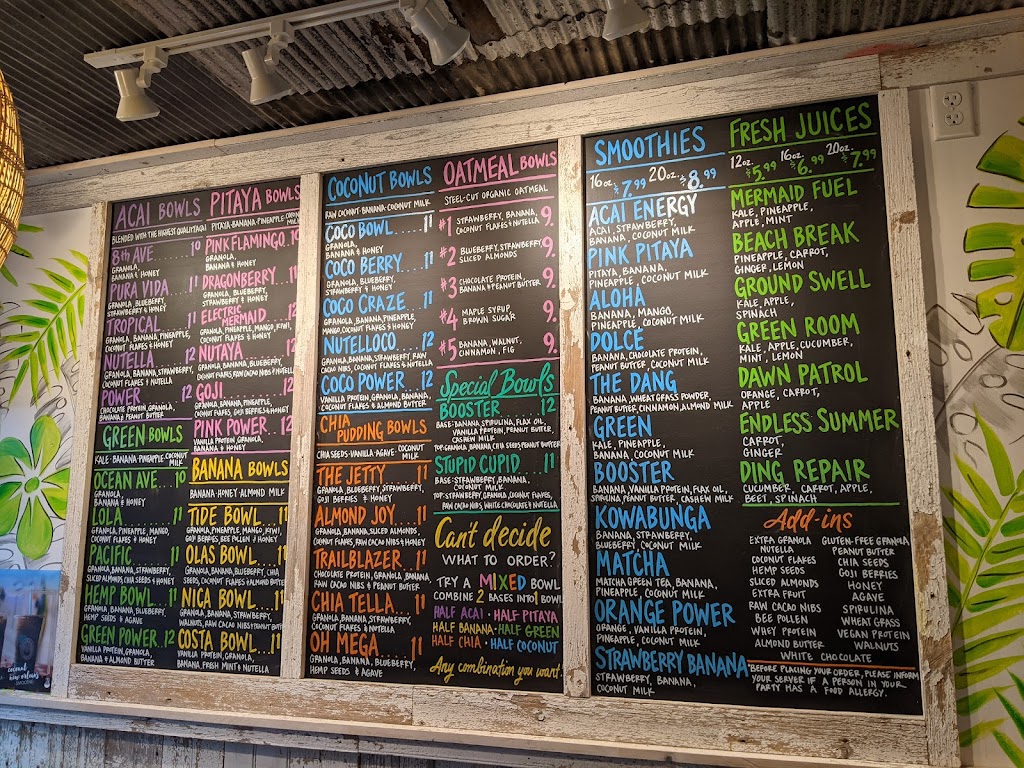 ACAI BOWLS
BLENDED WITH THE HIGHEST QUALITY ACAI
8th AVE.... 10
GRANOLA,
BANANA & HONEY
PURA VIDA.... 11
GRANOLA, BLUEBERRY,
STRAWBERRY & HONEY
TROPICAL.... 11
GRANOLA, BANANA, PINEAPPLE,
COCONUT FLAKES & HONEY
NUTELLA.... 12
GRANOLA, BANANA, STRAWBERRY,
COCONUT FLAKES & NUTELLA
POWER 12
CHOCOLATE PROTEIN, GRANOLA,
BANANA & PEANUT BUTTER
GREEN BOWLS
KALE·BANANA·PINEAPPLE·COCONUT MILK
OCEAN AVE... 10
GRANOLA,
BANANA & HONEY
LOLA....... 11
GRANOLA, PINEAPPLE, MANGO,
COCONUT FLAKES & HONEY
PACIFIC.... 11
GRANOLA, BANANA, STRAWBERRY,
SLICED ALMONDS, CHIA SEEDS & HONEY
HEMP BOWL. 11
GRANOLA, BANANA, BLUEBERRY,
HEMP SEEDS & AGAVE
GREEN POWER. 12
VANILLA PROTEIN, GRANOLA,
BANANA & ALMOND BUTTER
PITAYA BOWLS
PITAYA·BANANA·PINEAPPLE·COCONUT MILK
PINK FLAMINGO. 10
GRANOLA,
BANANA & HONEY
DRAGONBERRY... 11
GRANOLA, BLUEBERRY,
STRAWBERRY & HONEY
ELECTRIC
MERMAID.. 11
GRANOLA, PINEAPPLE, MANGO, KIWI,
COCONUT FLAKES & HONEY
NUTAYA..... 12
GRANOLA, BANANA, BLUEBERRY,
COCONUT FLAKES, RAW CACAO NIBS & NUTELLA
GOJI....... 12
GRANOLA, BANANA, PINEAPPLE,
COCONUT FLAKES, GOJI BERRIES & HONEY
PINK POWER.. 12
VANILLA PROTEIN, GRANOLA,
BANANA & HONEY
BANANA BOWLS
BANANA·HONEY·ALMOND MILK
TIDE BOWL... 11
GRANOLA, PINEAPPLE, MANGO, KIWI,
GOJI BERRIES, BEE POLLEN & HONEY
OLAS BOWL... 11
GRANOLA, BANANA, BLUEBERRY, CHIA
SEEDS, COCONUT FLAKES & ALMOND BUTTER
NICA BOWL... 11
GRANOLA, BANANA, STRAWBERRY,
WALNUTS, RAW CACAO NIBS & PEANUT BUTTER
COSTA BOWL... 11
GRANOLA, STRAWBERRY,
BANANA, FRESH MINT & NUTELLA
COCONUT BOWLS
RAW COCONUT·BANANA·COCONUT MILK
COCO BOWL.... 11
GRANOLA,
BANANA & HONEY
COCO BERRY... 11
GRANOLA, BLUEBERRY,
STRAWBERRY & HONEY
COCO CRAZE... 11
GRANOLA, BANANA, PINEAPPLE,
MANGO, COCONUT FLAKES & HONEY
NUTELLOCO.. 12
GRANOLA, BANANA, STRAWBERRY, RAW
CACAO NIBS, COCONUT FLAKES & NUTELLA
COCO POWER.. 12
VANILLA PROTEIN, GRANOLA, BANANA,
COCONUT FLAKES & ALMOND BUTTER
CHIA
PUDDING BOWLS
CHIA SEEDS·VANILLA·AGAVE·COCONUT MILK
THE JETTY.... 11
GRANOLA, BLUEBERRY, STRAWBERRY,
GOJI BERRIES & HONEY
ALMOND JOY... 11
GRANOLA, BANANA, SLICED ALMONDS,
COCONUT FLAKES, RAW CACAO NIBS & HONEY
TRAILBLAZER.. 11
CHOCOLATE PROTEIN, GRANOLA, BANANA,
RAW CACAO NIBS & PEANUT BUTTER
CHIA TELLA... 11
GRANOLA, BANANA, STRAWBERRY,
COCONUT FLAKES & NUTELLA
OH MEGA.... 11
GRANOLA, BANANA, BLUEBERRY,
HEMP SEEDS & AGAVE
OATMEAL BOWLS
STEEL-CUT ORGANIC OATMEAL
#1 STRAWBERRY, BANANA,
COCONUT FLAKES & NUTELLA 9.
#2 BLUEBERRY, STRAWBERRY,
SLICED ALMONDS 9.
#3 CHOCOLATE PROTEIN,
BANANA & PEANUT BUTTER 9.
#4 MAPLE SYRUP,
BROWN SUGAR 9.
#5 BANANA, WALNUT,
CINNAMON, FIG 9.
Special Bowls
BOOSTER...... 12
BASE·BANANA, SPIRULINA, FLAX OIL,
VANILLA PROTEIN, PEANUT BUTTER,
CASHEW MILK
TOP·GRANOLA, BANANA, CHIA SEEDS, PEANUT BUTTER
STUPID CUPID... 11
BASE·STRAWBERRY, BANANA,
COCONUT MILK
TOP·STRAWBERRY, GRANOLA, COCONUT FLAKES,
RAW CACAO NIBS, WHITE CHOCOLATE & NUTELLA
Can't decide
WHAT TO ORDER?
TRY A MIXED BOWL
COMBINE 2 BASES INTO 1 BOWL
HALF ACAI·HALF PITAYA
HALF BANANA·HALF GREEN
HALF CHIA·HALF COCONUT
Any combination you want
SMOOTHIES
16oz. $7.99 20oz. $8.99
ACAI ENERGY
ACAI, STRAWBERRY,
BANANA, COCONUT MILK
PINK PITAYA
PITAYA, BANANA,
PINEAPPLE, COCONUT MILK
ALOHA
BANANA, MANGO,
PINEAPPLE, COCONUT MILK
DOLCE
BANANA, CHOCOLATE PROTEIN,
PEANUT BUTTER, COCONUT MILK
THE DANG
BANANA, WHEAT GRASS POWDER,
PEANUT BUTTER, CINNAMON, ALMOND MILK
GREEN
KALE, PINEAPPLE,
BANANA, COCONUT MILK
BOOSTER
BANANA, VANILLA PROTEIN, FLAX OIL,
SPIRULINA, PEANUT BUTTER, CASHEW MILK
KOWABUNGA
BANANA, STRAWBERRY,
BLUEBERRY, COCONUT MILK
MATCHA
MATCHA GREEN TEA, BANANA,
PINEAPPLE, COCONUT MILK
ORANGE POWER
ORANGE, VANILLA PROTEIN,
PINEAPPLE, COCONUT MILK
STRAWBERRY BANANA
STRAWBERRY, BANANA,
COCONUT MILK
FRESH JUICES
12oz. $5.99 16oz. $6.99 20oz. $7.99
MERMAID FUEL
KALE, PINEAPPLE,
APPLE, MINT
BEACH BREAK
PINEAPPLE, CARROT,
GINGER, LEMON
GROUND SWELL
KALE, APPLE,
SPINACH
GREEN ROOM
KALE, APPLE, CUCUMBER,
MINT, LEMON
DAWN PATROL
ORANGE, CARROT,
APPLE
ENDLESS SUMMER
CARROT,
GINGER
DING REPAIR
CUCUMBER, CARROT, APPLE,
BEET, SPINACH
Add-ins
EXTRA GRANOLA
NUTELLA
COCONUT FLAKES
HEMP SEEDS
SLICED ALMONDS
EXTRA FRUIT
RAW CACAO NIBS
BEE POLLEN
WHEY PROTEIN
ALMOND BUTTER
GLUTEN-FREE GRANOLA
PEANUT BUTTER
CHIA SEEDS
GOJI BERRIES
HONEY
AGAVE
SPIRULINA
WHEAT GRASS
VEGAN PROTEIN
WALNUTS
WHITE CHOCOLATE
BEFORE PLACING YOUR ORDER, PLEASE INFORM
YOUR SERVER IF A PERSON IN YOUR
PARTY HAS A FOOD ALLERGY.
coconut